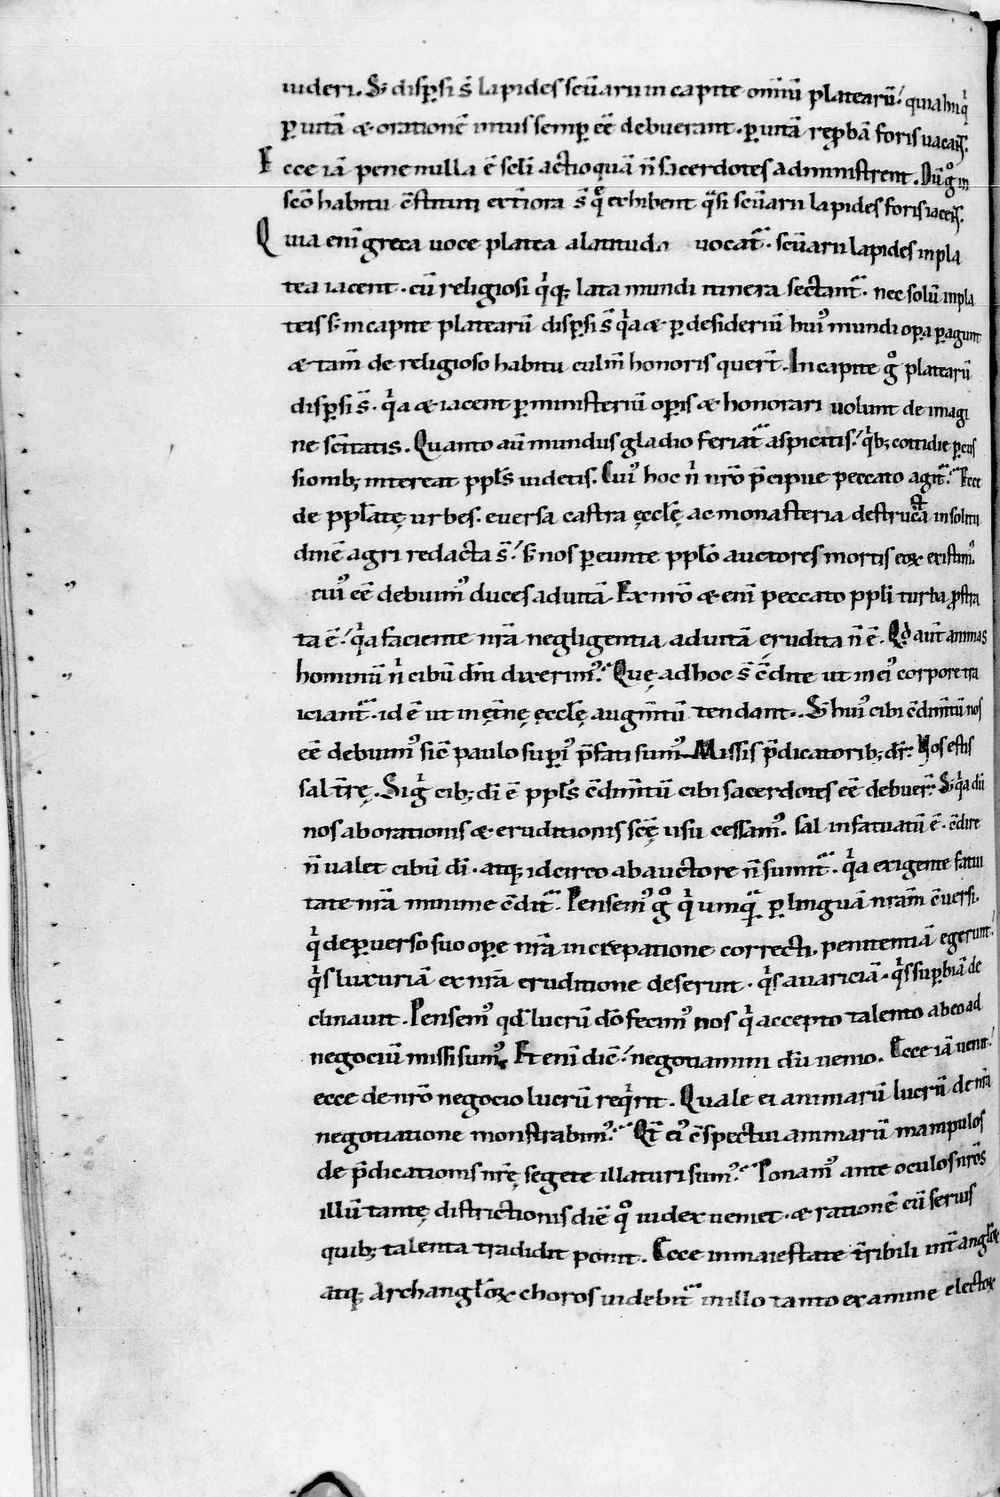 uideri. S; disp̱si s̄ lapides sc̄uarii in capite om̄iū plateaꝝ̄; quia hi qͥ
ꝑ uitā & orationē intus semꝑ eē debuerant. ꝑ uitā rep̱bā foris uacaⁿt.
Ecce iā pene nulla ē sc̄li actio quā ñ sacerdotes administrent. Dū gͦ in
sc̄o habitu c̄stituti exteriora s̄ q̨ exhibent qͣsi sc̄uarii lapides foris iaceⁿt.
Quia eni greca uoce platea a latitudi uocat᷑. sc̄uarii lapides in pla
tea iacent. cū religiosi qͥq; lata mundi itinera sectant᷑. nec solū in pla
teis s; in capite platearū disp̱si s̄ qͥa & ꝑ desideriū huiꝰ mundi oꝑa ꝑagunt
& tam̄ de religioso habitu culm̄ honoris quer̄t. In capite gͦ platearū
disp̱si s̄. qͥa & iacent ꝑ ministeriū oꝑis & honorari uolunt de imagi
ne sc̄itatis. Quanto au᷑ mundus gladio feriat᷑ aspicitis; qͥb; cottidie ꝑcus
sionib; intereat ppl̄s uidetis. Cuiꝰ hoc ñ nr̄o p̄cipue peccato agit᷑. Ecce
de ppl̄atę urbes. euersa castra ęccl̄ę ac monasteria destructa in solitu
dinē agri redacta s̄; s; nos ꝑeunte ppl̄o auctores mortis eoꝝ existimꝰ
cuiꝰ eē debuimꝰ duces ad uitā. Ex nr̄o & eni peccato ppli turba ꝓstra
ta ē; qͥa faciente nr̄a negligentia ad uitā erudita ñ ē. Qd̓ aut̄ animas
hominū ñ cibū dn̄i dixerimꝰ. Quę ad hoc s̄ c̄dite ut in eiꝰ corpore tra
iciant᷑. id ē ut in ęt̄nę ęccl̄ę augm̄tū tendant. S; huiꝰ cibi c̄dim̄tū nos
eē debuimꝰ sic̄ paulo suꝑiꝰ p̄fati sumꝰ Missis p̄dicatorib; dr̄. Vos estis
sal t̄rę. Si gͦ cib; di ē ppl̄s c̄dim̄tū cibi sacerdotes eē debuer̄. S; qͥa dū
nos ab orationis & eruditionis sc̄ę usu cessam̄ꝰ. sal infatuatū ē. c̄dire
ñ ualet cibū di. atq; idcirco ab auctore ñ sumit᷑. qͥa exigente fatui
tate nr̄a minime c̄dit᷑. Pensemꝰ gͦ qͥ umqͣ ꝑ linguā nr̄am c̄uersi.
qͥ de ꝑuerso suo oꝑe nr̄a increpatione correcti. penitentiā egerunt.
qͥs luxuriā ex nr̄a eruditione deseruit. qͥs auariciā. qͥs suꝑbiā de
clinauit. Pensemꝰ qd̓ lucrū do̅ fecimꝰ nos qͥ accepto talento ab eo ad
negociū missi sumꝰ. Et eni dic̄; negotiamini dū uenio. Ecce iā uenit;
ecce de nr̄o negocio lucrū reqͥrit. Quale ei animarū lucrū de nr̄a
negotiatione monstrabimꝰ. Qͦt eiꝰ c̄spectui animarū manipulos
de p̄dicationis nr̄ę segete illaturi sumꝰ. Ponamꝰ ante oculos nr̄os
illū tantę districtionis diē qͦ iudex ueniet. & rationē cū seruis
quib; talenta tradidit ponit. Ecce in maiestate t̄ribili int̄ angl̄oꝝ
atq; Archangl̄oꝝ choros uidebit᷑ in illo tanto examine electoꝝ